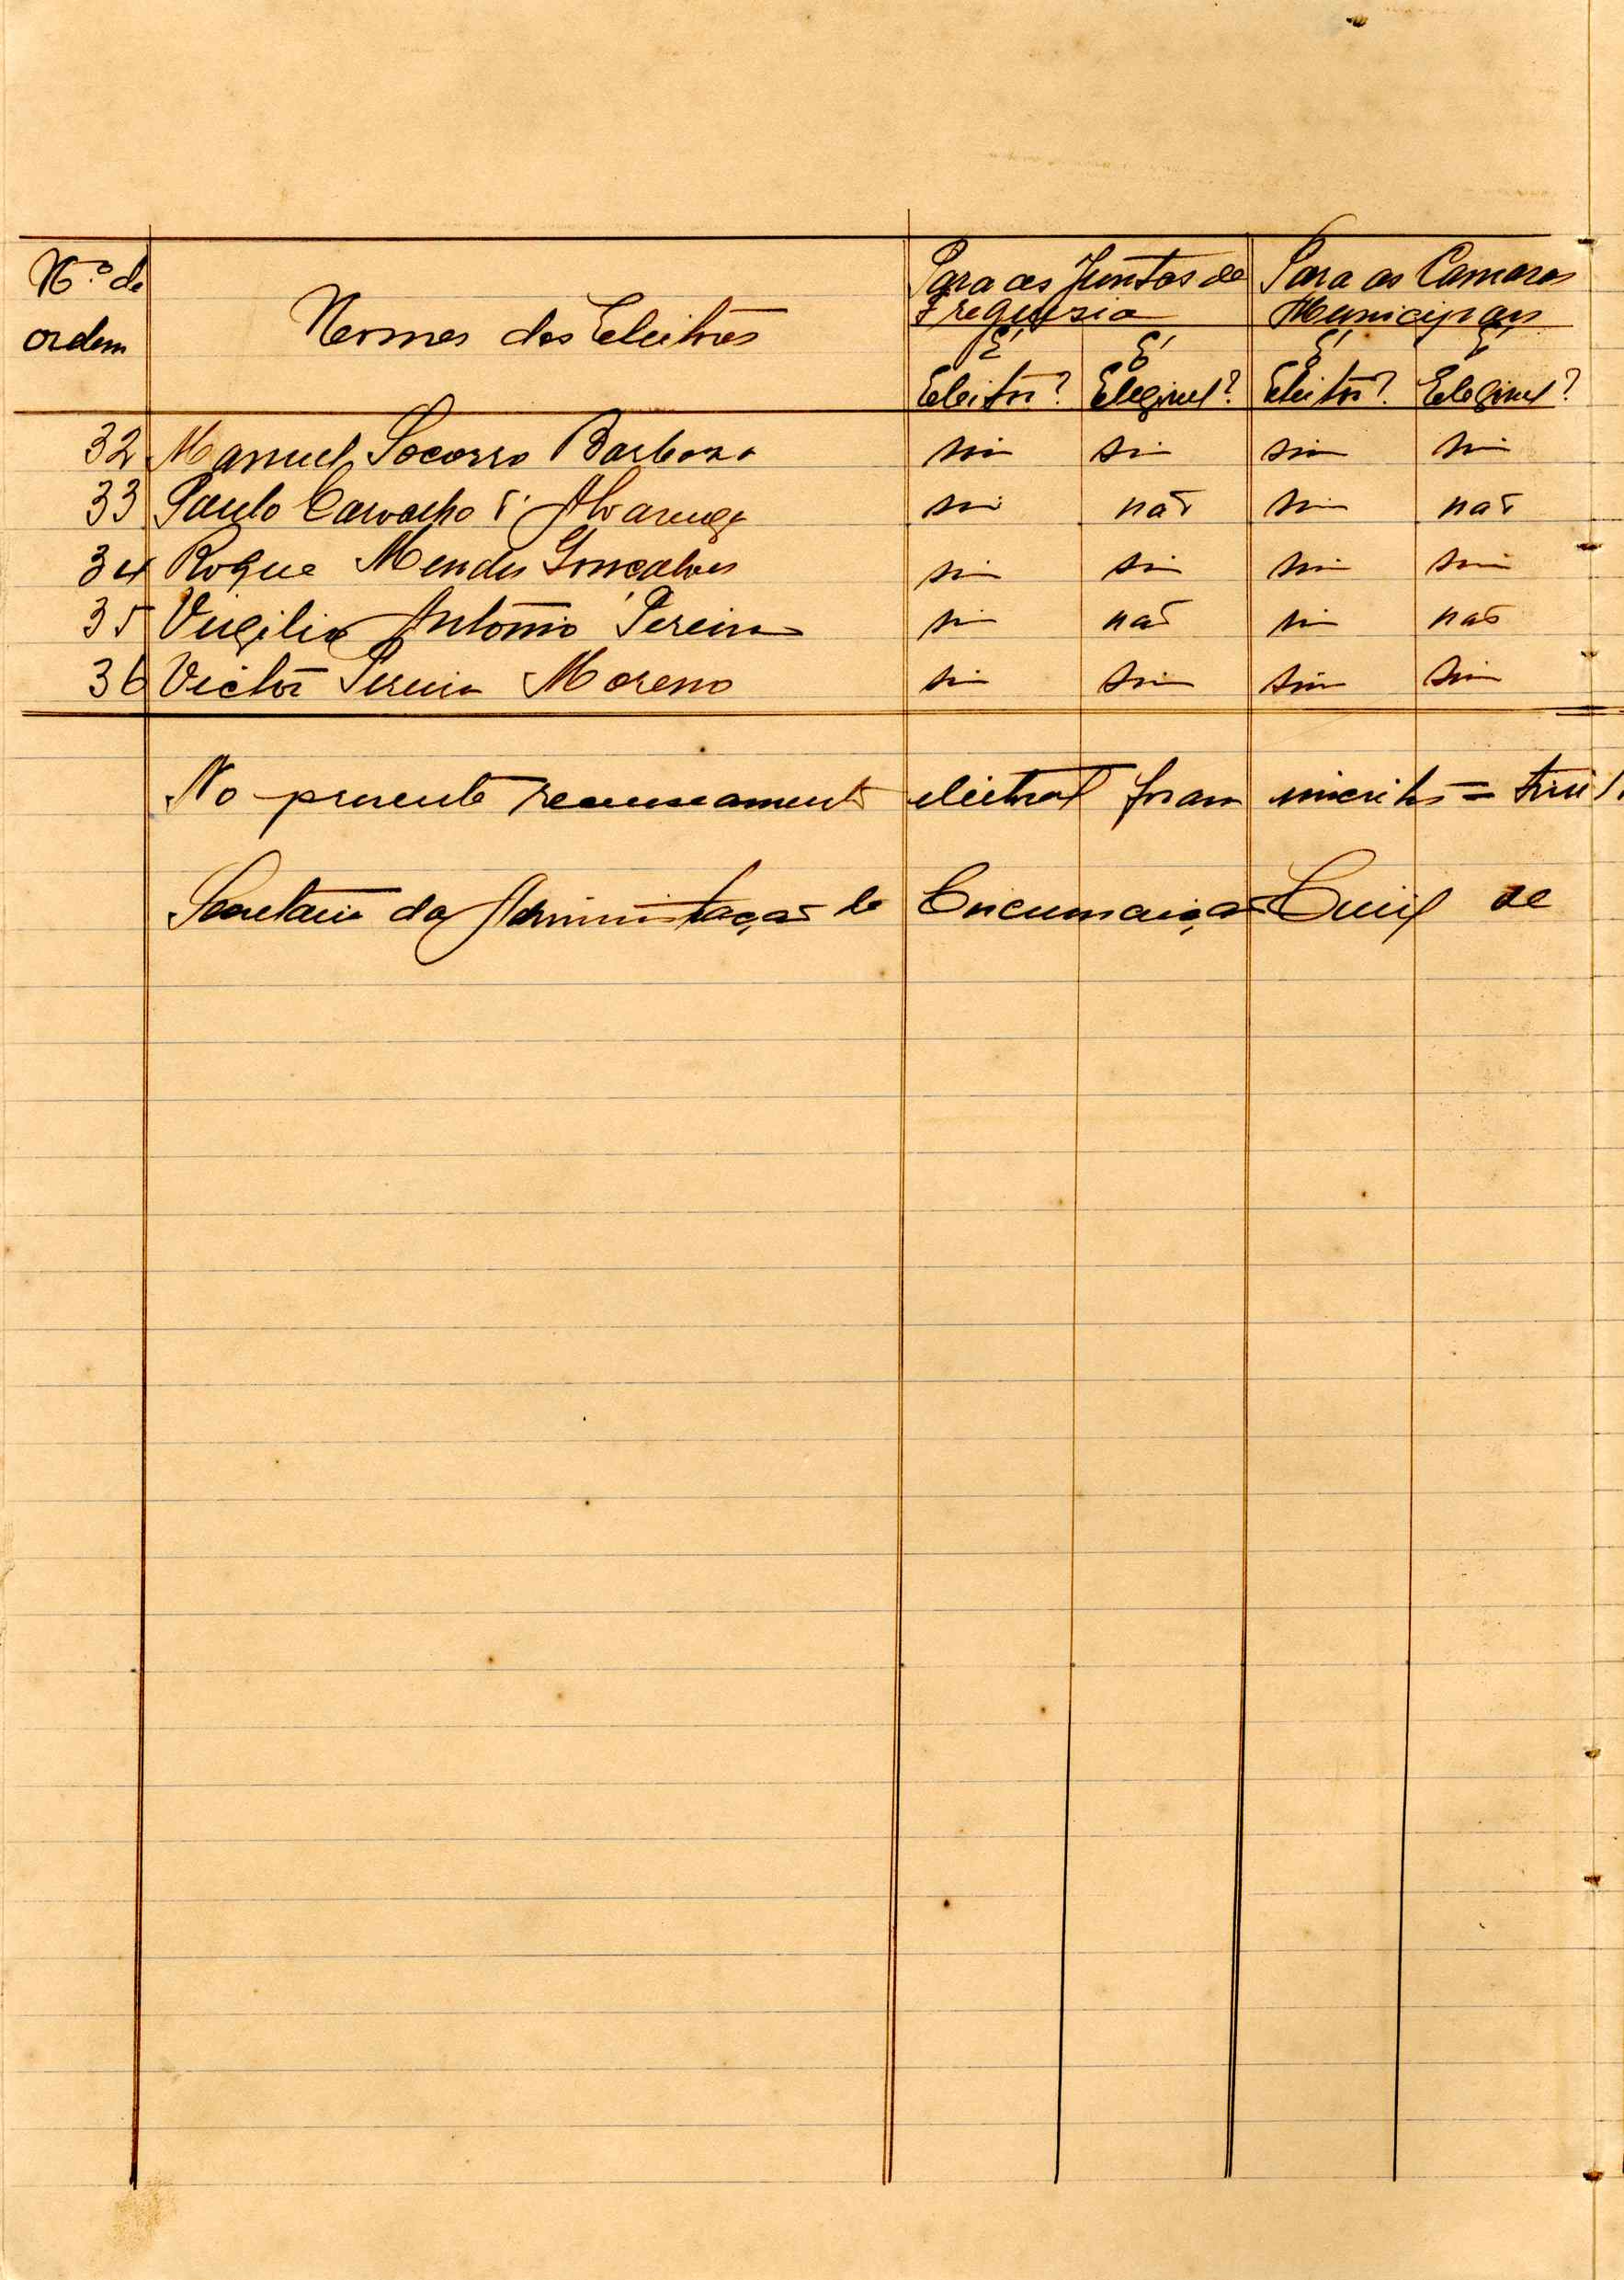 N.º de ordem
Nomes dos Eleitores
Para as Juntas de Freguesia
Para as Camaras Municipais
É Eleitor? É Elegivel? É Eleitor? É Elegivel?
32 Manuel Socorro Barbosa sim sim sim sim
33 Paulo Carvalho d'Alvarenga sim não sim não
34 Roque Mendes Gonçalves sim sim sim sim
35 Virgilio António Pereira sim não sim não
36 Victor Pereira Moreno sim sim sim sim
No presente recenseamento eleitoral foram inscritos =
Secretaria da Administração do Circunscrição Civil de